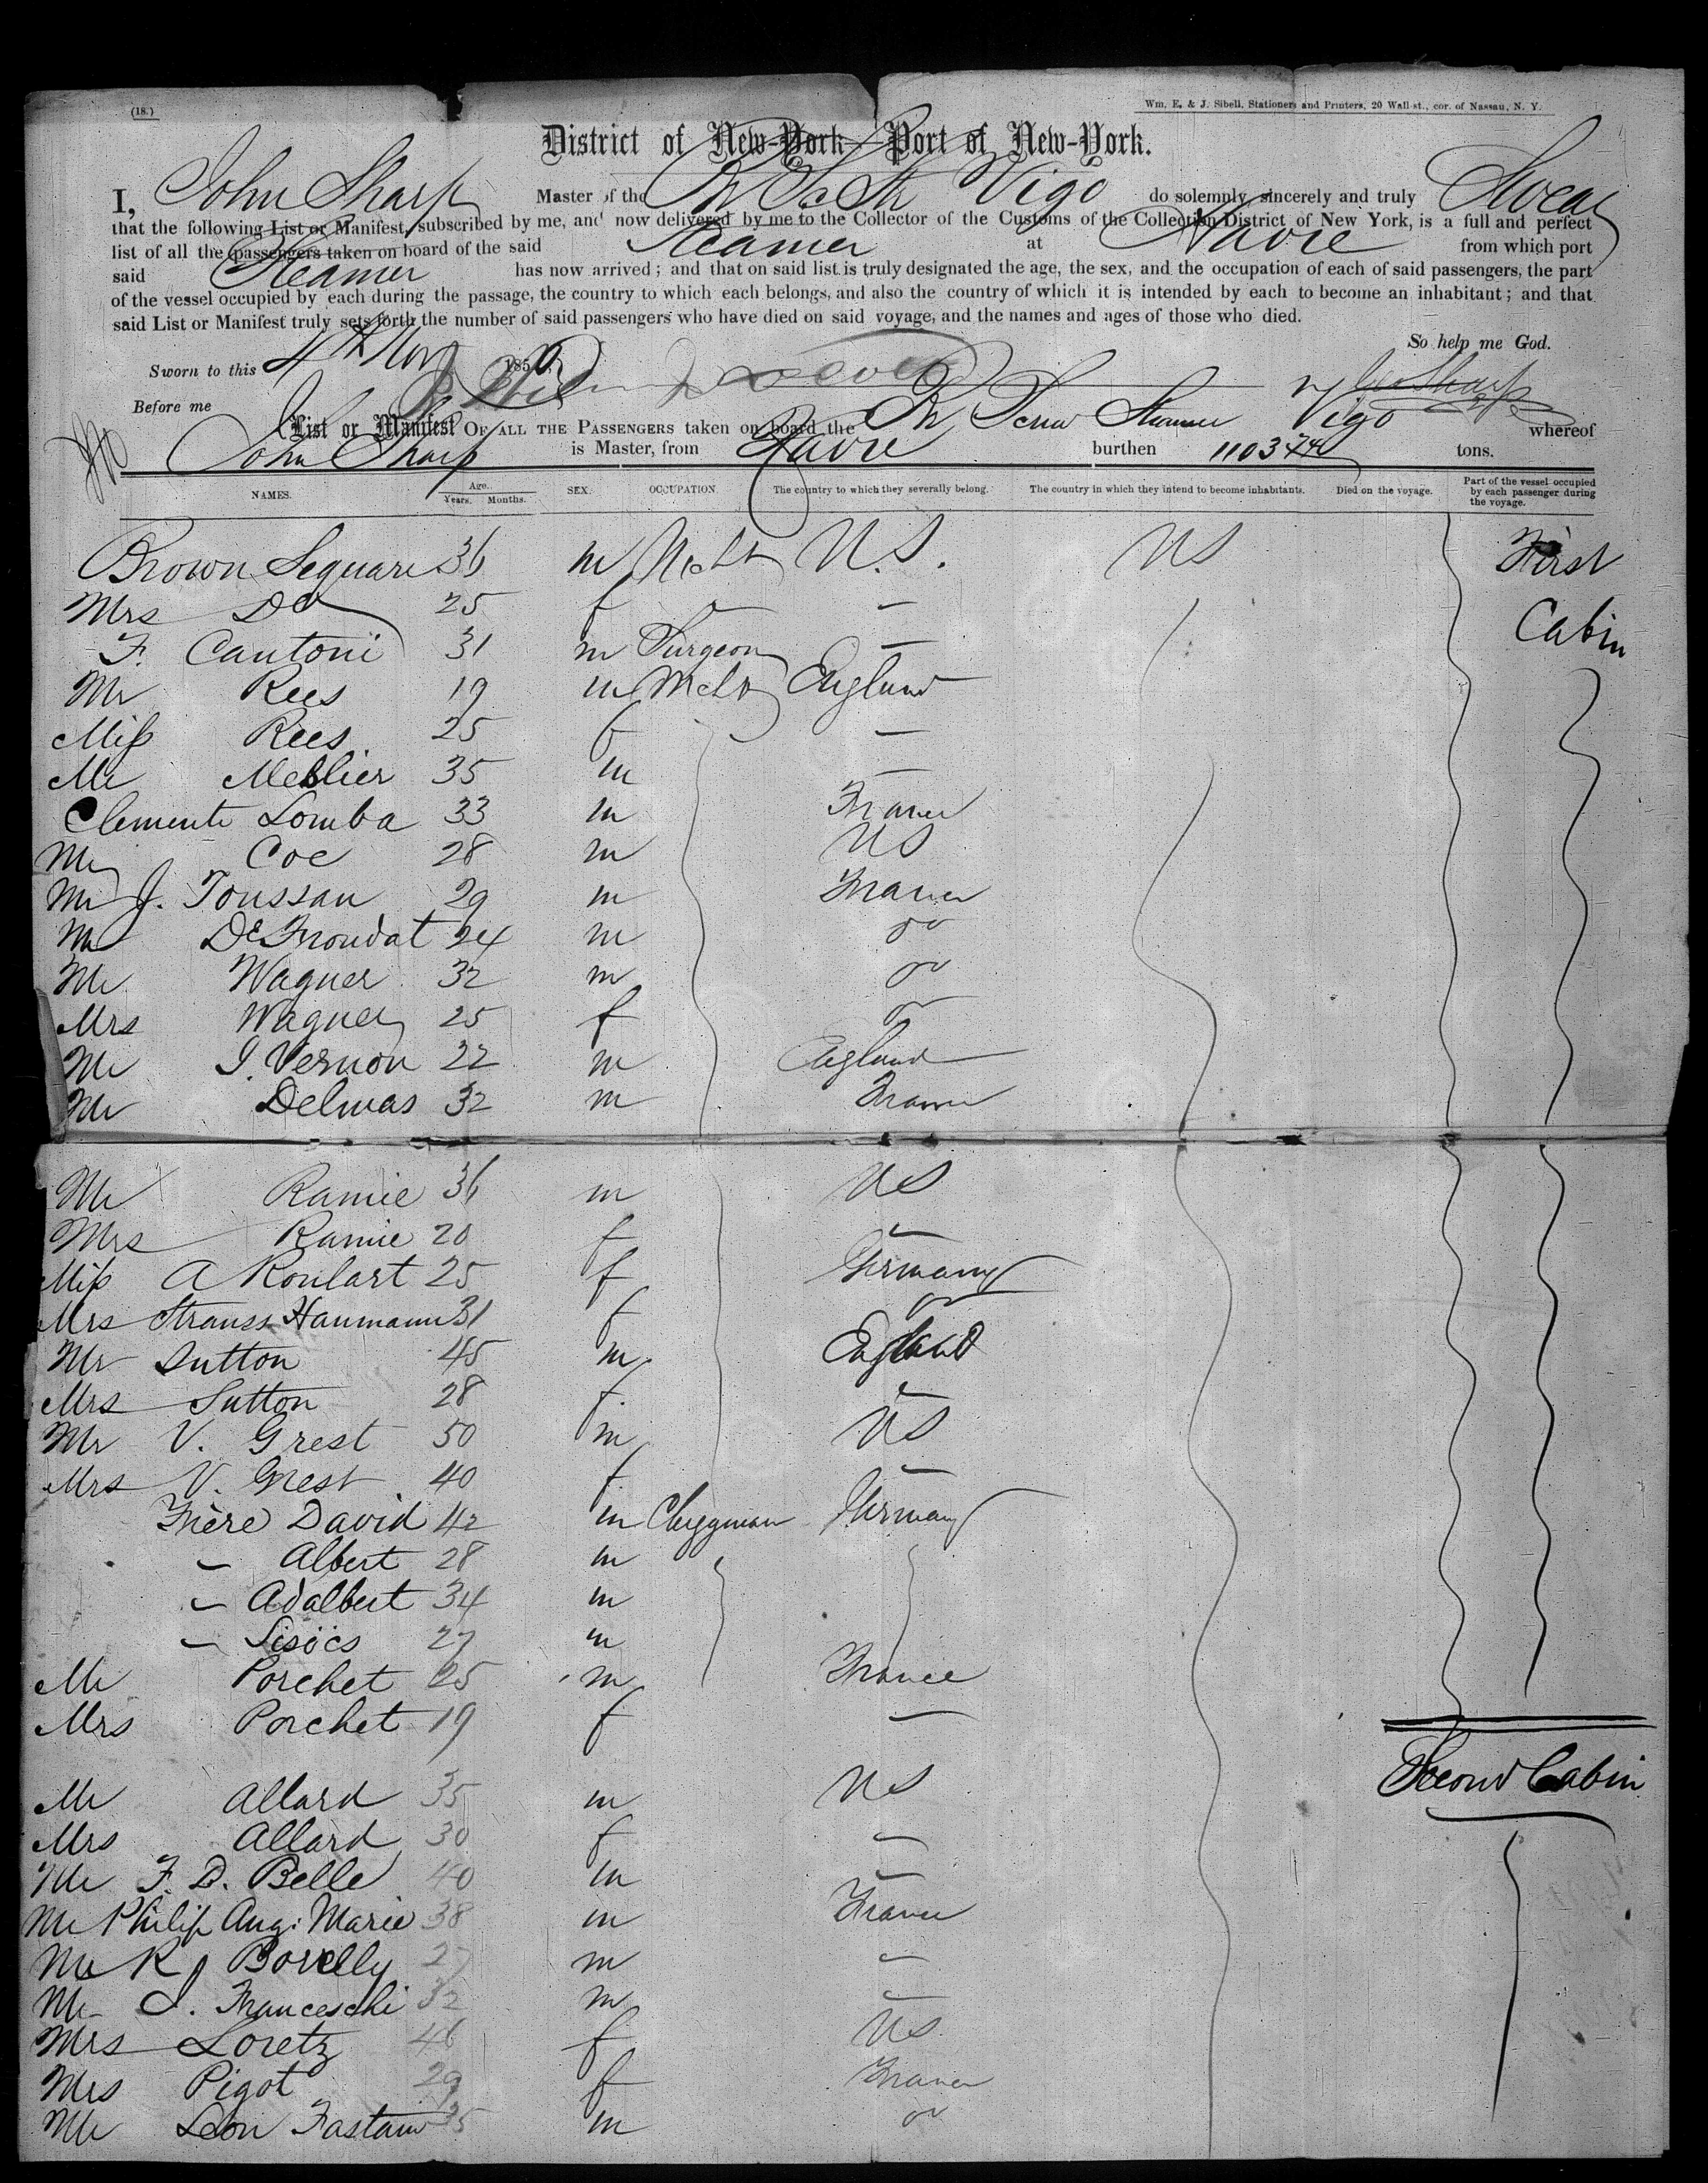 (18.)
Wm. E. & J. Sibell, Stationers and Printers, 20 Wall-st., cor. of Nassau, N. Y.
District of New-York—Port of New-York.
I, John Sharp Master of the Br Sc Str Vigo do solemnly, sincerely and truly Swear
that the following List or Manifest, subscribed by me, and now delivered by me to the Collector of the Customs of the Collection District of New York, is a full and perfect
list of all the passengers taken on board of the said Steamer at Havre from which port
said Steamer has now arrived; and that on said list is truly designated the age, the sex, and the occupation of each of said passengers, the part
of the vessel occupied by each during the passage, the country to which each belongs, and also the country of which it is intended by each to become an inhabitant; and that
said List or Manifest truly sets forth the number of said passengers who have died on said voyage, and the names and ages of those who died.
So help me God.
Sworn to this 4th Nov 185
Before me Jno Sharp
List or Manifest OF ALL THE PASSENGERS taken on board the Br Screw Steamer Vigo whereof
John Sharp is Master, from Havre burthen 1103 74 tons.
NAMES. Age. Years. Months. SEX. OCCUPATION. The country to which they severally belong. The country in which they intend to become inhabitants. Died on the voyage. Part of the vessel occupied by each passenger during the voyage.
Brown Sequard 36 m Mcht U.S. US First
Mrs Do 25 f — Cabin
F. Cantoni 31 m Surgeon —
Mr Rees 19 m Mcht England
Miss Rees 25 f —
Mr Mellier 35 m —
Clemente Lomba 33 m France
Mr Coe 28 m US
Mr J. Toussan 29 m France
Mr De Frondat 24 m do
Mr Wagner 32 m do
Mrs Wagner 25 f do
Mr J. Vernon 22 m England
Mr Delmas 32 m France
Mr Ramie 36 m US
Mrs Ramie 20 f —
Miss A Roulart 25 f Germany
Mrs Strauss Haumann 31 f do
Mr Sutton 45 m England
Mrs Sutton 28 f —
Mr V. Grest 50 m US
Mrs V. Grest 40 f —
Frère David 42 m Clergyman Germany
— Albert 28 m
— Adalbert 34 m
— Sisoës 27 m
Mr Porchet 25 m France
Mrs Porchet 19 f —
Second Cabin
Mr Allard 35 m US
Mrs Allard 30 f —
Mr F. D. Belle 40 m —
Mr Philip Aug: Marie 38 m France
Mr R J Borelly 27 m —
Mr J. Franceschi 32 m —
Mrs Loretz 46 f US
Mrs Pigot 29 f France
Mr Leon Fastau 35 m do